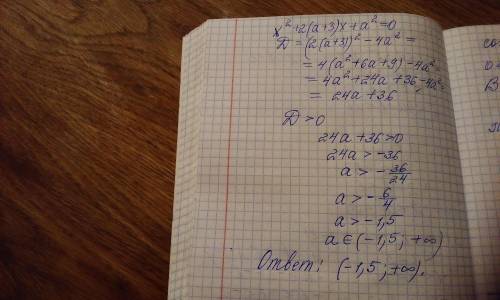 x² + 2(a+3)x + a² = 0
D = (2(a+3))² - 4a² =
= 4(a² + 6a + 9) - 4a² =
= 4a² + 24a + 36 - 4a² =
= 24a + 36
D > 0
24a + 36 > 0
24a > -36
a > - 36/24
a > - 6/4
a > -1,5
a ∈ (-1,5; +∞)
Ответ: (-1,5; +∞).